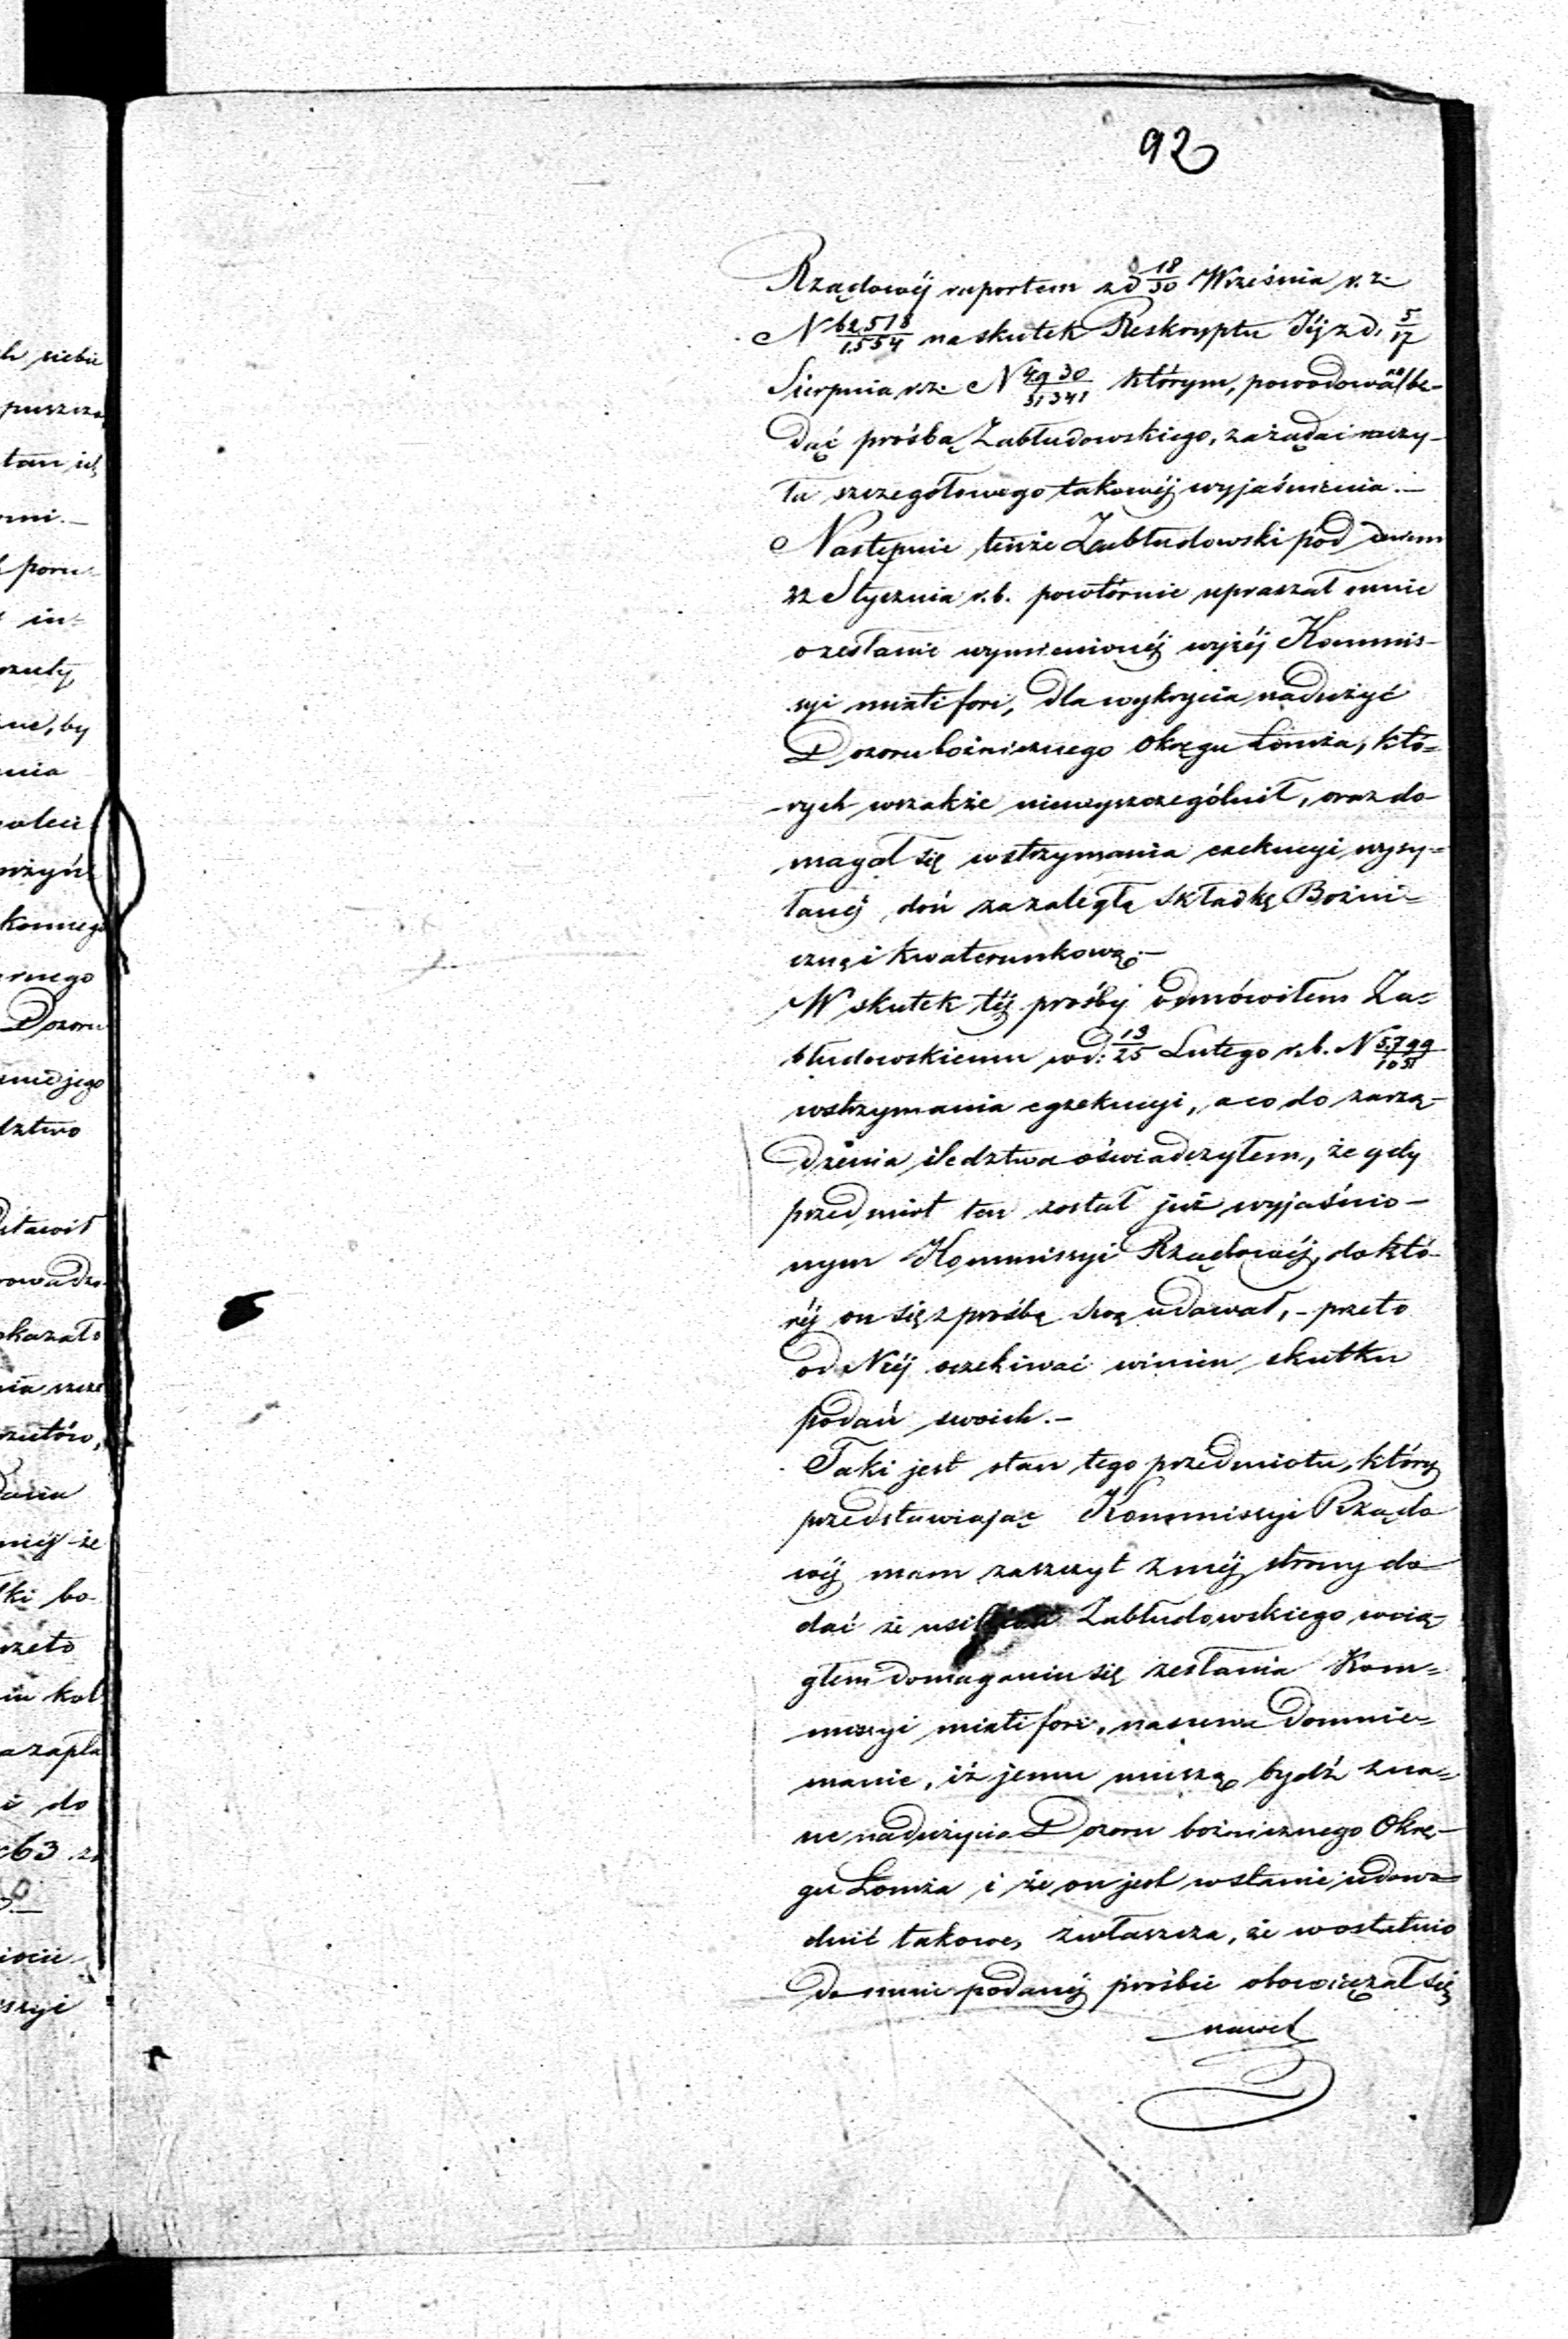 92
Rządowéj raportem z d 18/30 Września r. z.
N 62518/1554 na skutek Reskryptu Jéj z d. 5/17
Sierpnia r. z. N 4930/31341 którym, powodowaną bę-
dąc prośbą Zabłudowskiego, zażądać raczy-
ła szczegółowego takowéj wyjaśnienia.—
Następnie tenże Zabłudowski pod dniem
22 Stycznia r. b. powtórnie upraszał mnie
o zesłanie wymienionéj wyżéj Kommis-
syi mixti fori, dla wykrycia nadużyć
Dozoru bożniczego Okręgu Łomża, któ-
rych wszakże niewyszczególnił, oraz do-
magał się wstrzymania exekucyi wysy-
łanéj doń za zaległą Składkę Bożni-
czną i kwaterunkową.—
W skutek téj prośby odmówiłem Za-
błudowskiemu w d: 13/25 Lutego r. b. N 5799/1051
wstrzymania egzekucyi, a co do zarzą-
dzenia śledztwa oświadczyłem, że gdy
przedmiot ten został już wyjaśnio-
nym Kommissyi Rządowéj, do któ-
réj on się z prośbą swą udawał, - przeto
od Niéj oczekiwać winien skutku
podań swoich.—
Taki jest stan tego przedmiotu, który
przedstawiając Kommissyi Rządo
wéj mam zaszczyt z méj strony do
dać że Zabłudowskiego w cią-
głem domaganiu się zesłania Kom-
missyi mixti fori, nasuwa domnie-
manie, iż jemu muszą bydź zna-
ne nadużycia Dozoru bożnicznego Okrę-
gu Łomża i że on jest w stanie udowo-
dnić takowe, zwłaszcza, że w ostatnio
do mnie podanéj prośbie obowiązał się
nawet